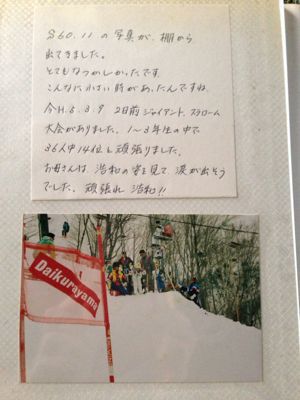 S60.11 の写真が、棚から
出てきました。
とてもなつかしかったです
こんなに小さい時があったんですね
今H.6.3.9 2日前ジャイアント、スラローム
大会がありました。1〜3年生の中で
36人中14位と頑張りました。
お母さんは、浩和の姿を見て涙が出そう
でした。頑張れ 浩和!!
Daikurayama